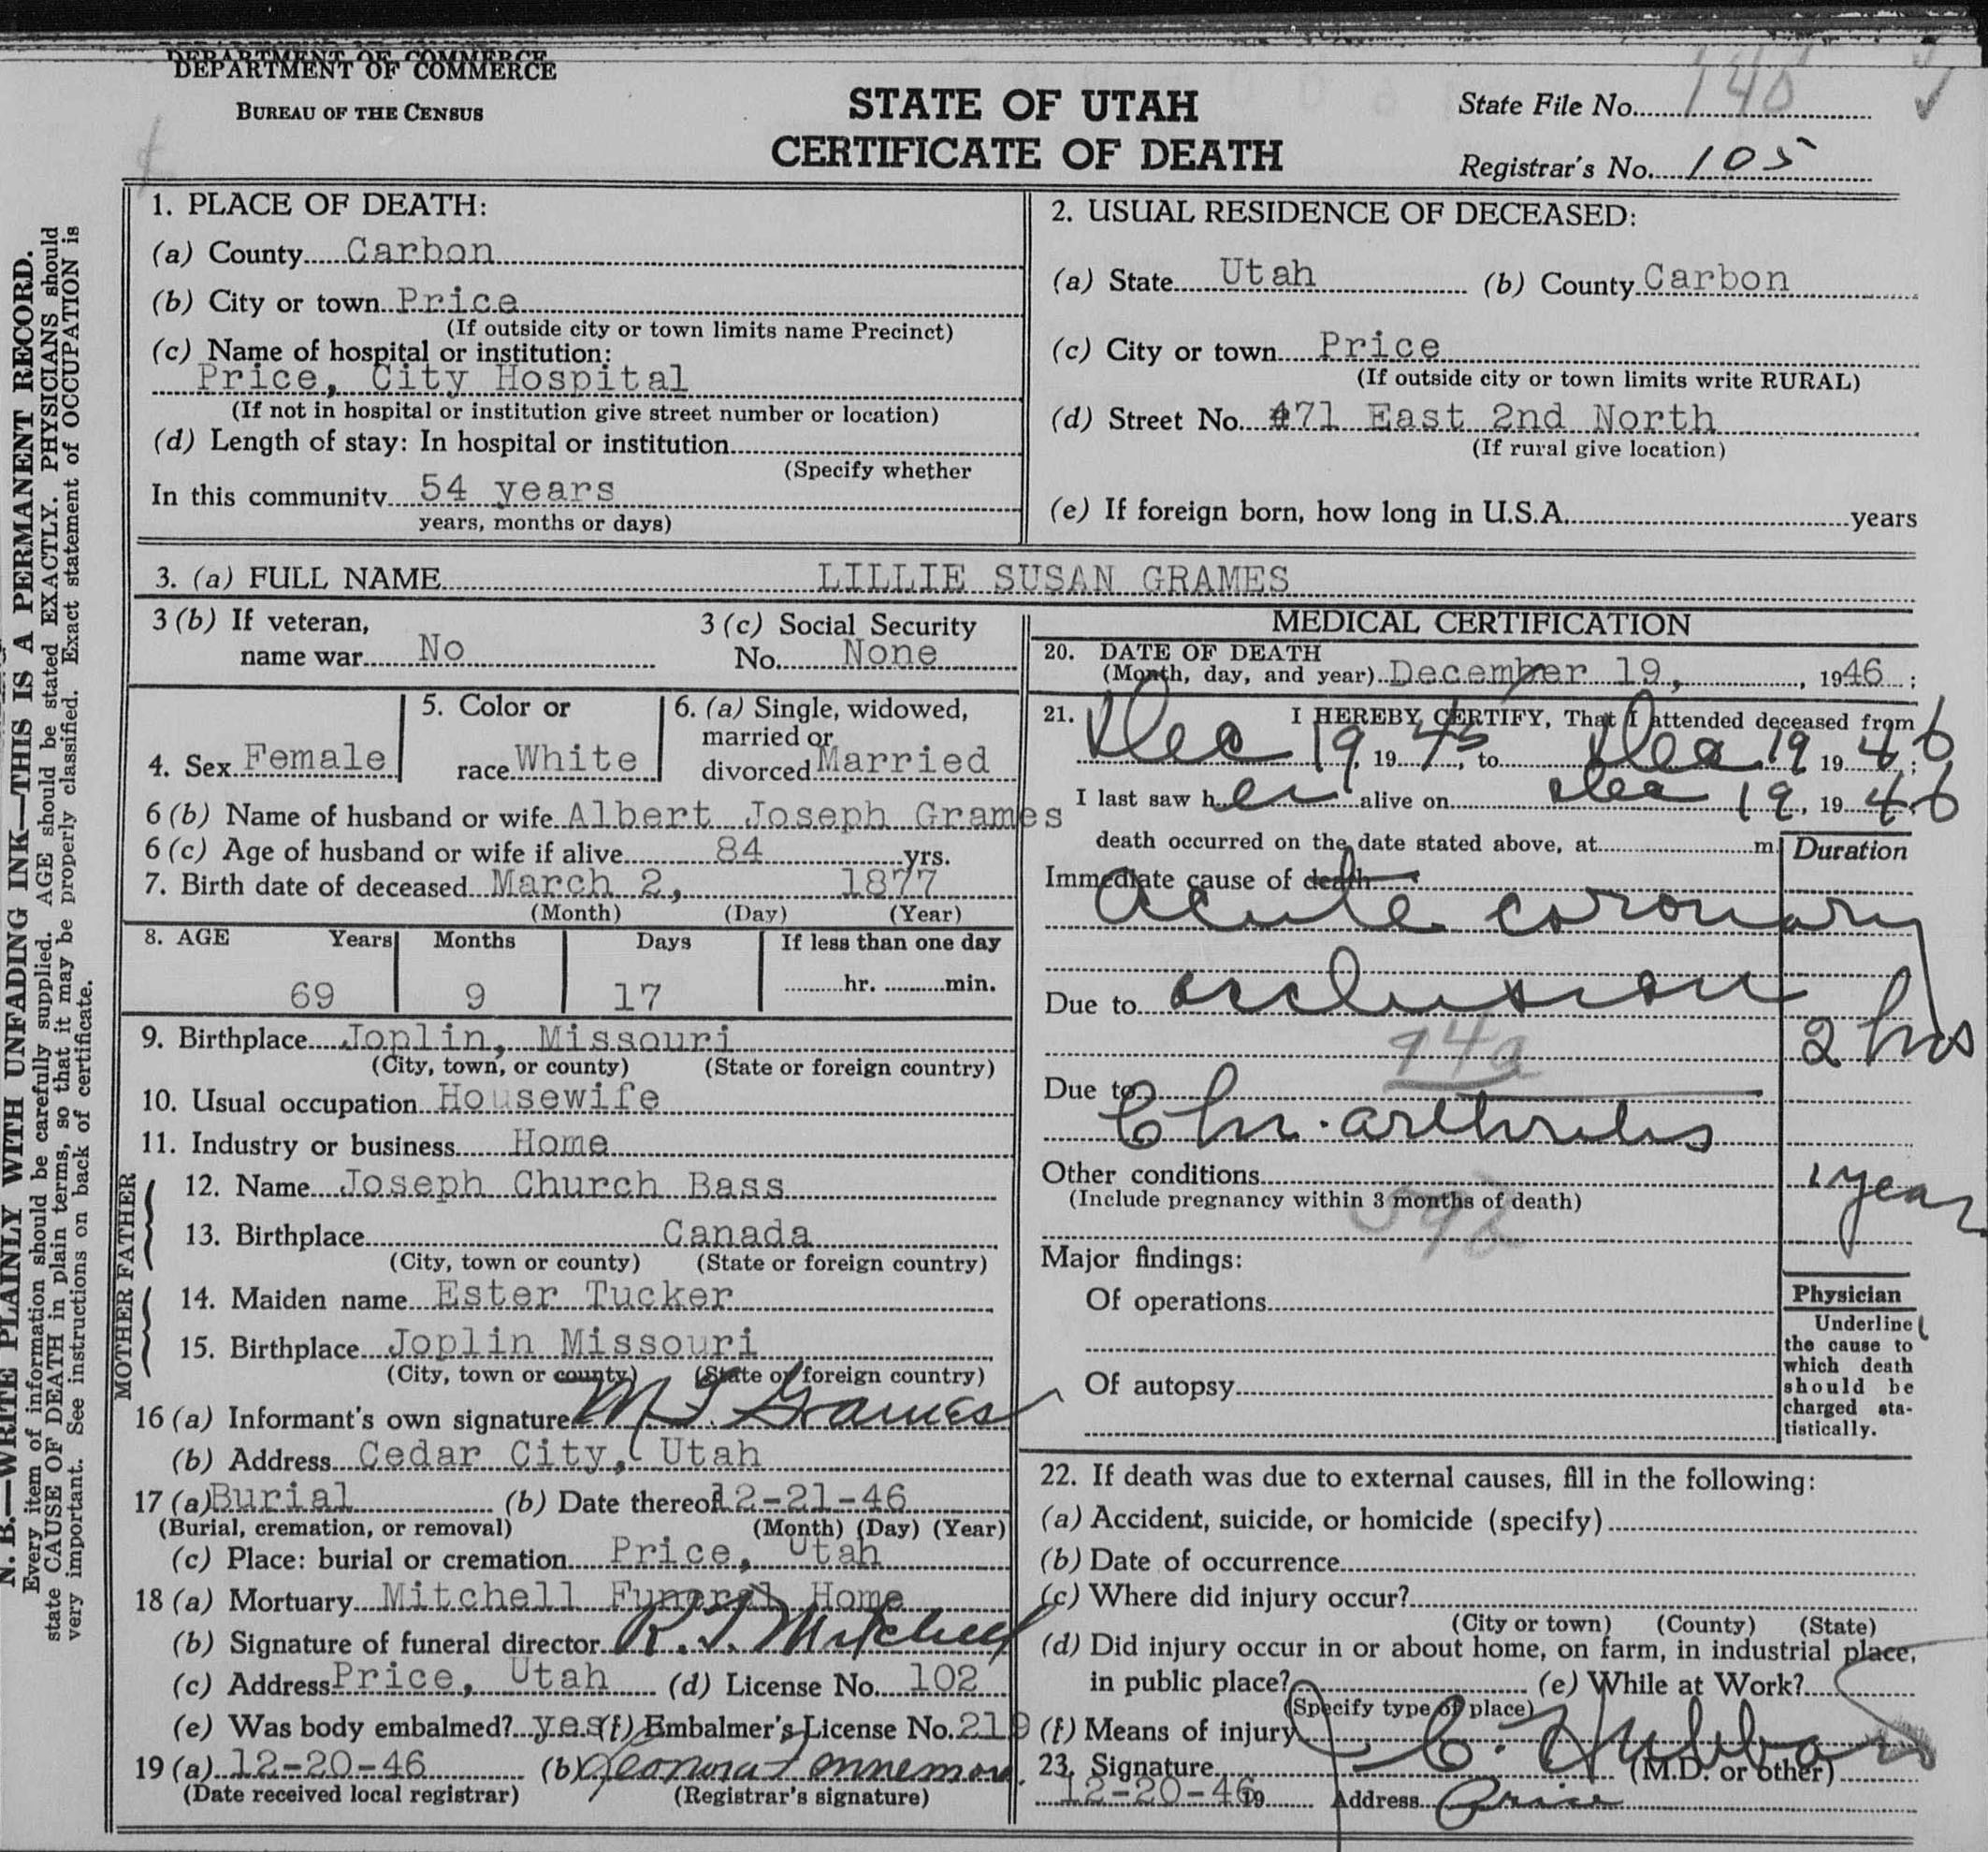 DEPARTMENT OF COMMERCE
BUREAU OF THE CENSUS
STATE OF UTAH
CERTIFICATE OF DEATH
State File No.
Registrar's No. 105
N. B.—WRITE PLAINLY WITH UNFADING INK—THIS IS A PERMANENT RECORD.
Every item of information should be carefully supplied. AGE should be stated EXACTLY. PHYSICIANS should
state CAUSE OF DEATH in plain terms, so that it may be properly classified. Exact statement of OCCUPATION is
very important. See instructions on back of certificate.
1. PLACE OF DEATH:
(a) County Carbon
(b) City or town Price
(If outside city or town limits name Precinct)
(c) Name of hospital or institution:
Price, City Hospital
(If not in hospital or institution give street number or location)
(d) Length of stay: In hospital or institution
(Specify whether
In this community 54 years
years, months or days)
2. USUAL RESIDENCE OF DECEASED:
(a) State Utah (b) County Carbon
(c) City or town Price
(If outside city or town limits write RURAL)
(d) Street No. 471 East 2nd North
(If rural give location)
(e) If foreign born, how long in U.S.A. years
3. (a) FULL NAME LILLIE SUSAN GRAMES
3 (b) If veteran,
name war No
3 (c) Social Security
No. None
4. Sex Female
5. Color or
race White
6. (a) Single, widowed,
married or
divorced Married
6 (b) Name of husband or wife Albert Joseph Grames
6 (c) Age of husband or wife if alive 84 yrs.
7. Birth date of deceased March 2, 1877
(Month) (Day) (Year)
8. AGE Years Months Days If less than one day
69 9 17 hr. min.
9. Birthplace Joplin, Missouri
(City, town, or county) (State or foreign country)
10. Usual occupation Housewife
11. Industry or business Home
FATHER
12. Name Joseph Church Bass
13. Birthplace Canada
(City, town or county) (State or foreign country)
MOTHER
14. Maiden name Ester Tucker
15. Birthplace Joplin Missouri
(City, town or county) (State or foreign country)
16 (a) Informant's own signature Grames
(b) Address Cedar City, Utah
17 (a) Burial (b) Date thereof 12-21-46
(Burial, cremation, or removal) (Month) (Day) (Year)
(c) Place: burial or cremation Price, Utah
18 (a) Mortuary Mitchell Funeral Home
(b) Signature of funeral director Mitchell
(c) Address Price, Utah (d) License No. 102
(e) Was body embalmed? yes (f) Embalmer's License No. 219
19 (a) 12-20-46 (b)
(Date received local registrar) (Registrar's signature)
MEDICAL CERTIFICATION
20. DATE OF DEATH
(Month, day, and year) December 19, 1946;
21. I HEREBY CERTIFY, That I attended deceased from
Dec 19, 1945, to Dec 19 1946;
I last saw her alive on Dec 19, 1946
death occurred on the date stated above, at m. Duration
Immediate cause of death
Acute coronary
Due to occlusion
2 hrs
94a
Due to
Chr. arthritis
Other conditions 1 year
(Include pregnancy within 3 months of death)
Major findings:
Of operations
Of autopsy
Physician
Underline
the cause to
which death
should be
charged sta-
tistically.
22. If death was due to external causes, fill in the following:
(a) Accident, suicide, or homicide (specify)
(b) Date of occurrence
(c) Where did injury occur?
(City or town) (County) (State)
(d) Did injury occur in or about home, on farm, in industrial place,
in public place? (e) While at Work?
(Specify type of place)
(f) Means of injury
23. Signature C. Hubbard (M.D. or other)
12-20-46 19 Address Price